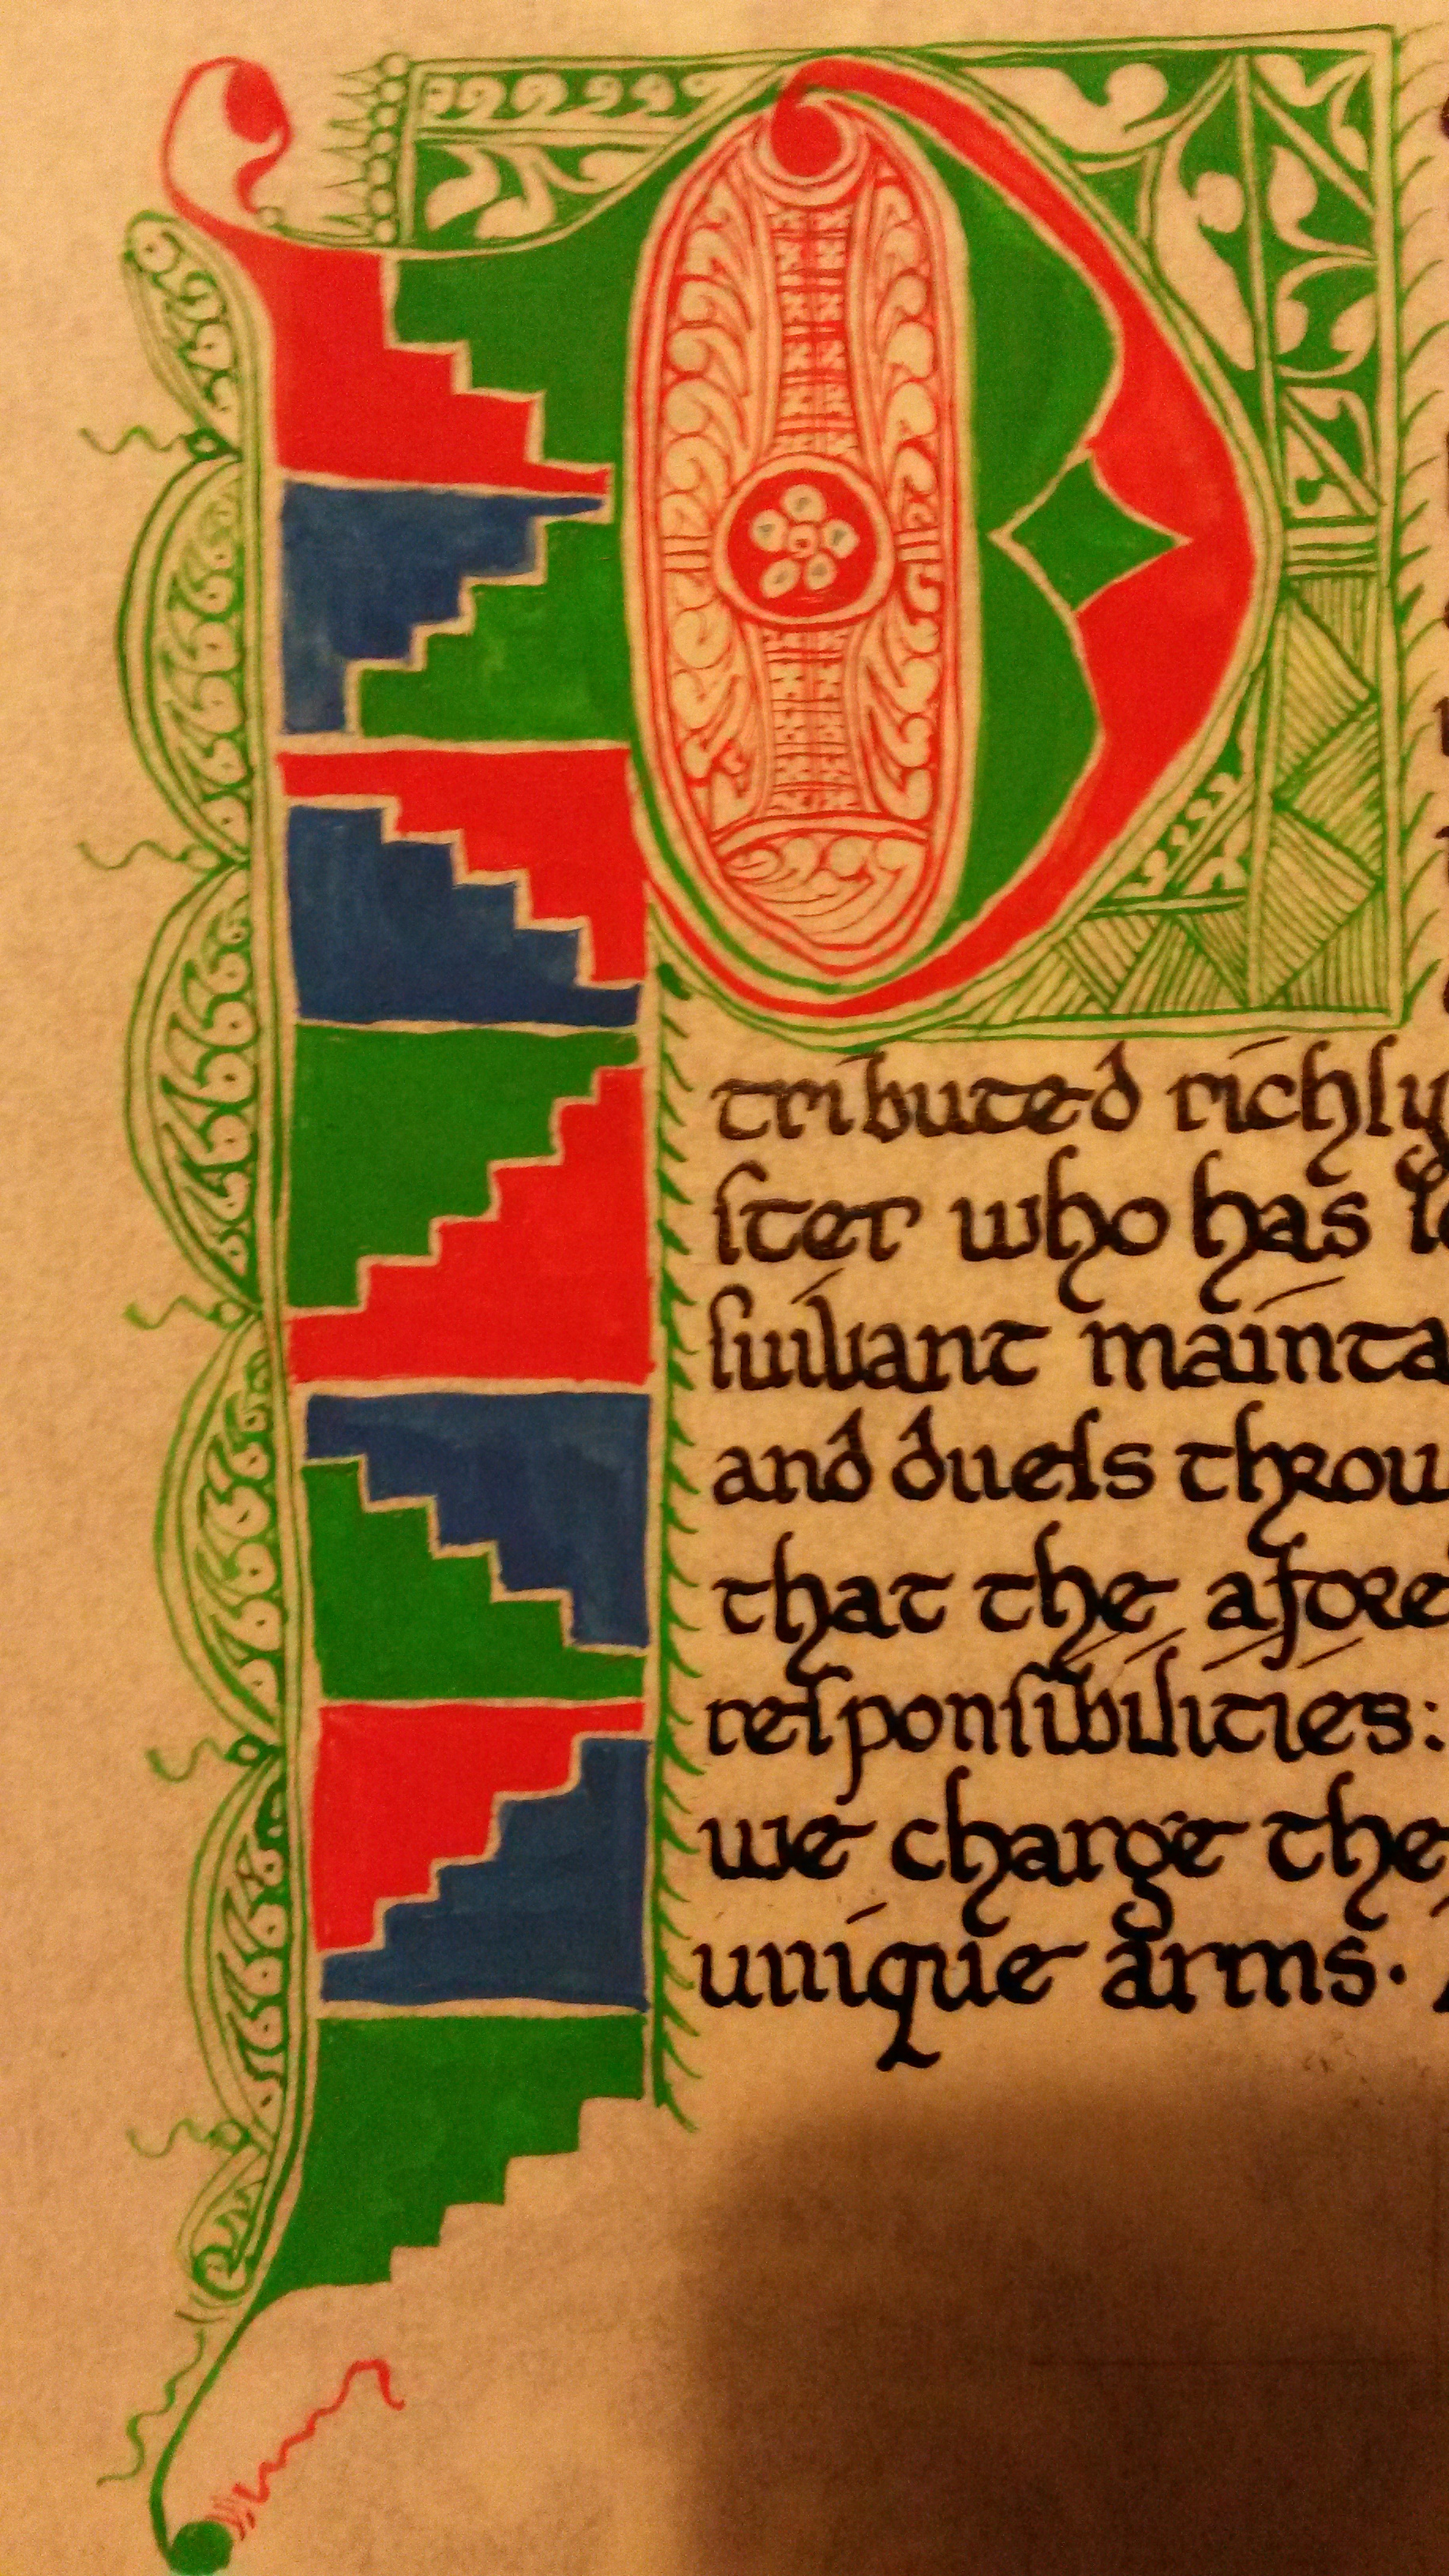 P
tributed richly
ſter who has
ſuivant mainta
and duels throu
that the afore
reſponſibilities:
we charge the
unique arms·